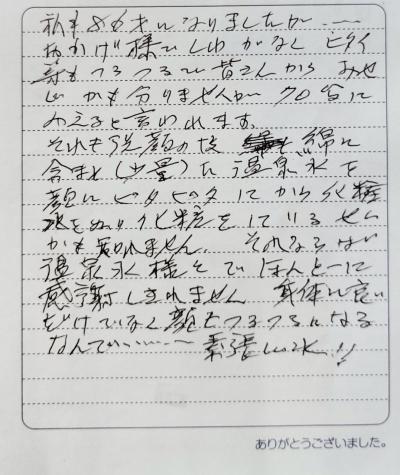 私も80才になりましたが……
おかげ様でしわがなくヒタイ
もつるつるで皆さんから
かも分りませんが70台に
みえると言われます。
それも洗顔の後 綿に
含ませ(少量)た温泉水を
顔にピタピタしてから化粧
水をぬり化粧をしているせい
かも知れません。それならば
温泉水様々でほんとーに
感謝しきれません 身体に良い
だけでなく顔もつるつるになる
なんて……〜 素張しい水!!
ありがとうございました。